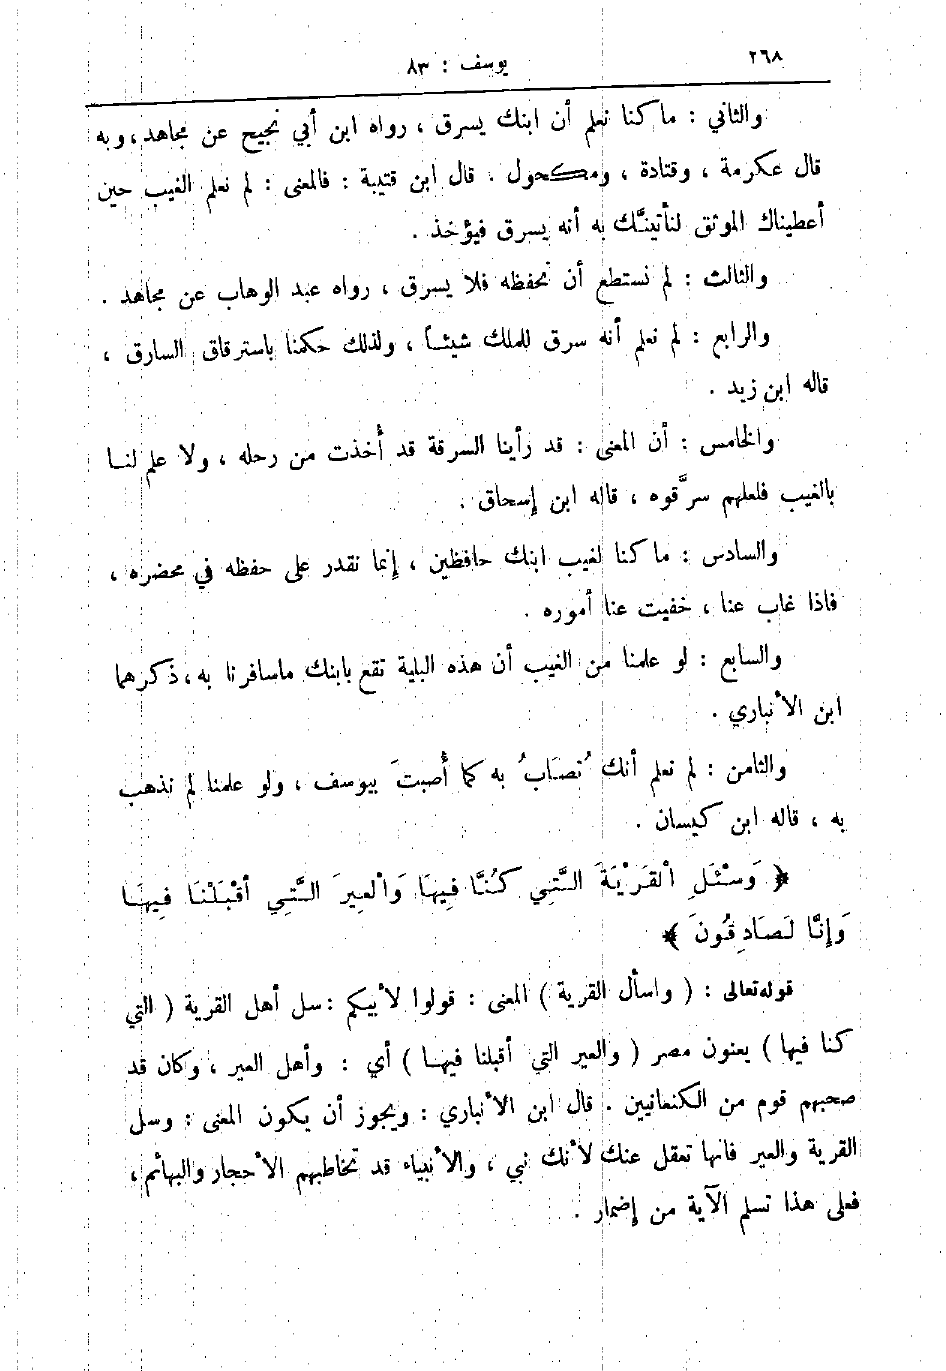 ٢٦٨
يوسف : ٨٣
والثاني : ما كنا نعلم أن ابنك يسرق ، رواه ابن أبي نجيح عن مجاهد ، وبه
قال عكرمة ، وقتادة ، ومكحول . قال ابن قتيبة : فالمعنى : لم نعلم الغيب حين
أعطيناك الموثق لنأتينَّك به أنه يسرق فيؤخذ .
والثالث : لم نستطع أن نحفظه فلا يسرق ، رواه عبد الوهاب عن مجاهد .
والرابع : لم نعلم أنه سرق للملك شيئـاً ، ولذلك حكمنا باسترقاق السارق ،
قاله ابن زيد .
والخامس : أن المعنى : قد رأينا السرقة قد أُخذت من رحله ، ولا علم لنـا
بالغيب فلعلهم سرَّقوه ، قاله ابن إسحاق .
والسادس : ما كنا لغيب ابنك حافظين ، إنما نقدر على حفظه في محضره ،
فاذا غاب عنا ، خفيت عنا أموره .
والسابع : لو علمنا من الغيب أن هذه البلية تقع بابنك ماسافرنا به ، ذكرهما
ابن الأنباري .
والثامن : لم نعلم أنك تُصَابُ به كما أُصبتَ بيوسف ، ولو علمنا لم نذهب
به ، قاله ابن كيسان .
﴿ وَسْئَلِ الْقَرْيَةَ الَّتِي كُنَّا فِيهَا وَالْعِيرَ الَّتِي أَقْبَلْنَا فِيهَـا
وَإِنَّا لَصَادِقُونَ ﴾
قوله تعالى : ( واسأل القرية ) المعنى : قولوا لأبيكم : سل أهل القرية ( التي
كنا فيها ) يعنون مصر ( والعير التي أقبلنا فيهـا ) أي : وأهل العير ، وكان قد
صحبهم قوم من الكنعانيين . قال ابن الأنباري : ويجوز أن يكون المعنى : وسل
القرية والعير فانها تعقل عنك لأنك نبي ، والأنبياء قد تخاطبهم الأحجار والبهائم ،
فعلى هذا تسلم الآية من إضمار .